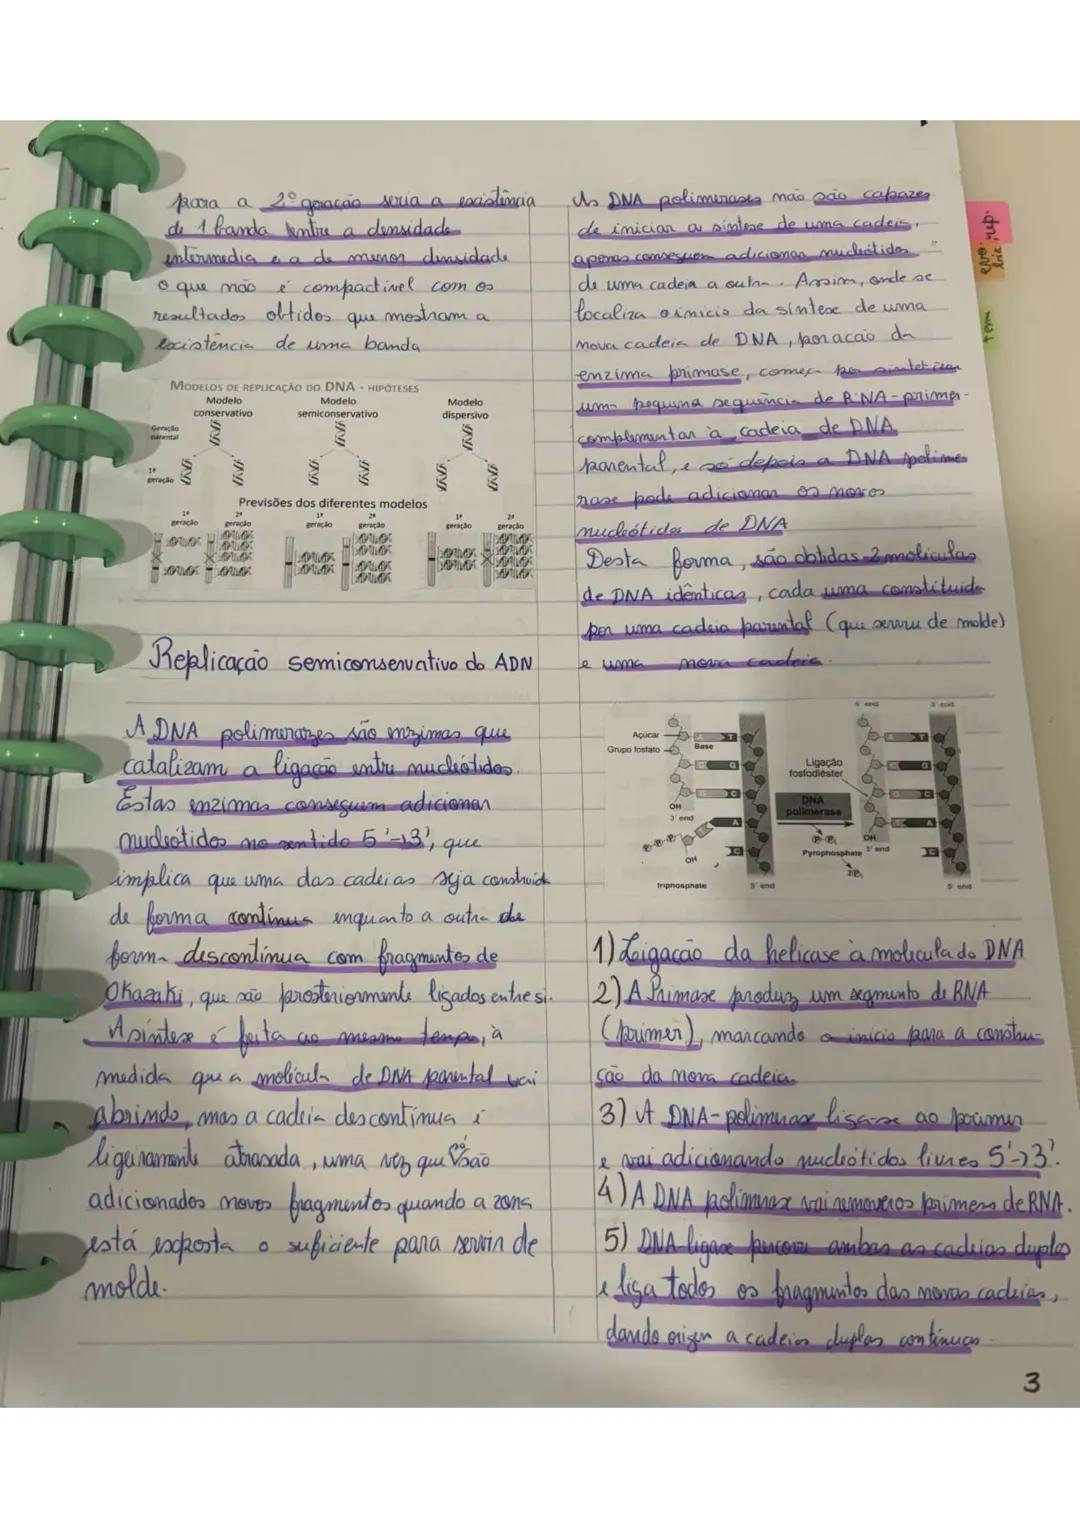 para a 2º geração seria a existência
de 1 banda entre a densidade
intermedia e a de menor densidade
o que não é compactivel com os
resultados obtidos que mostram a
existência de uma banda
MODELOS DE REPLICAÇÃO DO DNA - HIPÓTESES
Modelo conservativo
Modelo semiconservativo
Modelo dispersivo
Geração parental
1ª geração
Previsões dos diferentes modelos
1ª geração
2ª geração
1ª geração
2ª geração
1ª geração
2ª geração
Replicação semiconservativo do ADN
A DNA polimerazes são enzimas que
catalizam a ligação entre nucleótidos.
Estas enzimas conseguem adicionar
nucleótidos no sentido 5'→3', que
implica que uma das cadeias seja construida
de forma contínua enquanto a outra de
forma descontínua com fragmentos de
Okazaki, que são posteriormente ligados entre si.
A síntese é feita ao mesmo tempo, à
medida que a molécula de DNA parental vai
abrindo, mas a cadeia descontínua é
ligeiramente atrasada, uma vez que só são
adicionados novos fragmentos quando a zona
está exposta o suficiente para servir de
molde.
As DNA polimerases não são capazes
de iniciar a síntese de uma cadeia,
apenas conseguem adicionar nucleótidos
de uma cadeia a outra. Assim, onde se
localiza o inicio da síntese de uma
nova cadeia de DNA, por acão da
enzima primase, começa por sintetizar
uma pequena sequência de RNA-primer-
complementar à cadeia de DNA
parental, e só depois a DNA polime
rase pode adicionar os novos
nucleótidos de DNA
Desta forma, são obtidas 2 moléculas
de DNA idênticas, cada uma constituida
por uma cadeia parental (que serviu de molde)
e uma nova cadeia.
5' end
3' end
Açúcar
Grupo fosfato
Base
Ligação fosfodiéster
OH
3' end
DNA polimerase
OH
Pyrophosphate
3' end
OH
tripnosphate
5' end
5' end
1) Ligação da helicase à molécula do DNA
2) A Primase produz um segmento de RNA
(primer), marcando o inicio para a constru-
ção da nova cadeia.
3) A DNA-polimerase liga-se ao primer
e vai adicionando nucleótidos livres 5'→3'.
4) A DNA polimerase vai remover os primers de RNA.
5) DNA-ligase percorre ambas as cadeias duplas
e liga todos os fragmentos das novas cadeias,
dando origem a cadeias duplas contínuas.
3